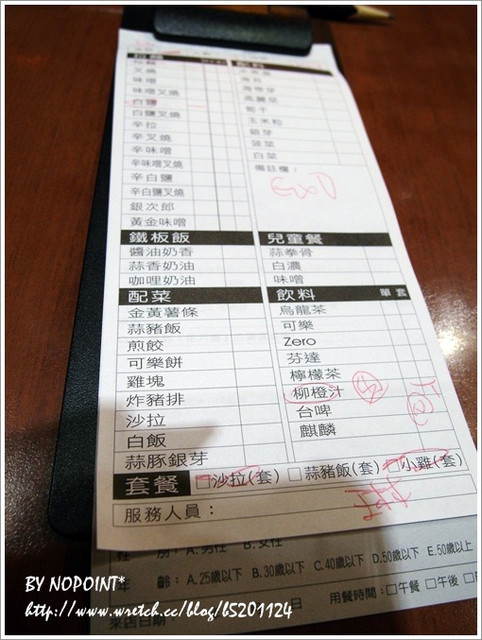 拉麵
配料
叉燒
味噌
海帶芽
味噌叉燒
高麗菜
白鹽
筍干
白鹽叉燒
玉米粒
辛拉
銀芽
辛叉燒
菠菜
辛味噌
白菜
辛味噌叉燒
備註欄：
辛白鹽
辛白鹽叉燒
銀次郎
黃金味噌
鐵板飯
兒童餐
醬油奶香
蒜拳骨
蒜香奶油
白濃
咖哩奶油
味噌
配菜
飲料 單 套
金黃薯條
烏龍茶
蒜豬飯
可樂
煎餃
Zero
可樂餅
芬達
雞塊
檸檬茶
炸豬排
柳橙汁
沙拉
台啤
白飯
麒麟
蒜豚銀芽
套餐 □沙拉(套) □蒜豬飯(套) □小雞(套)
服務人員：
性 別：A.男性 B.女性
年 齡：A.25歲以下 B.30歲以下 C.40歲以下 D.50歲以下 E.50歲以上
來店日期： 用餐時間：□午餐 □午後
BY NOPOINT*
http://www.wretch.cc/blog/b5201124